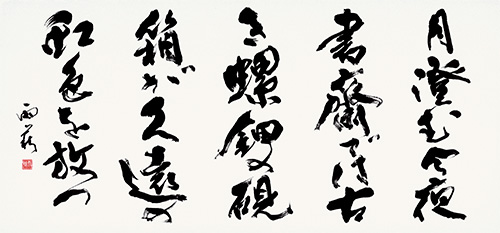 月澄む今夜
書齋では古
き螺鈿の硯
箱が久遠の
虹色を放つ